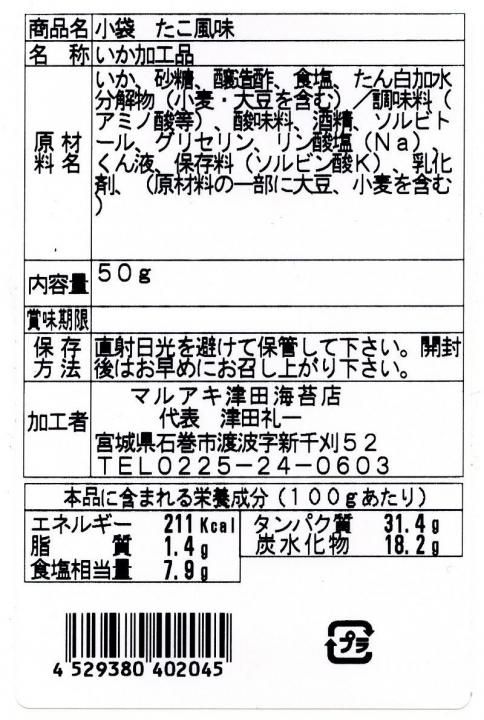 商品名 小袋　たこ風味
名　称 いか加工品
原材料名 いか、砂糖、醸造酢、食塩、たん白加水
分解物（小麦・大豆を含む）／調味料（
アミノ酸等）、酸味料、酒精、ソルビト
ール、グリセリン、リン酸塩（Ｎａ）、
くん液、保存料（ソルビン酸Ｋ）、乳化
剤、（原材料の一部に大豆、小麦を含む
）
内容量 ５０ｇ
賞味期限
保存方法 直射日光を避けて保管して下さい。開封
後はお早めにお召し上がり下さい。
加工者 マルアキ津田海苔店
代表　津田礼一
宮城県石巻市渡波字新千刈５２
ＴＥＬ０２２５－２４－０６０３
本品に含まれる栄養成分（１００ｇあたり）
エネルギー 211 Kcal タンパク質 31.4 g
脂　質 1.4 g 炭水化物 18.2 g
食塩相当量 7.9 g
4 529380 402045
プラ